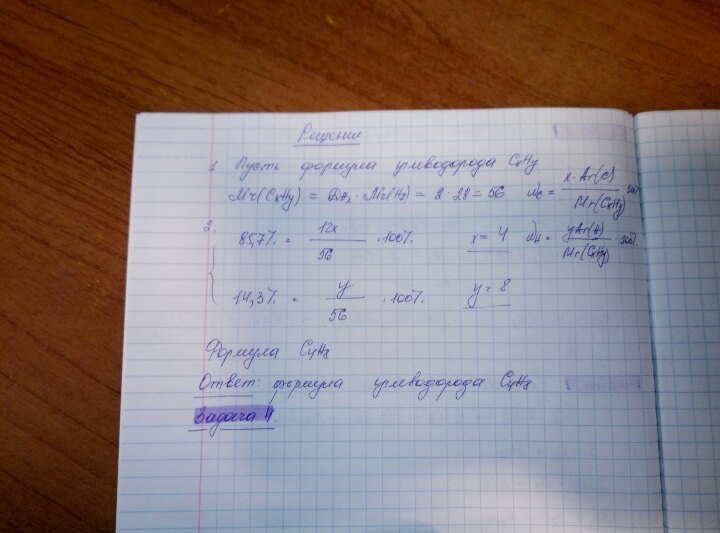 Решение
1. Пусть формула углеводорода CxHy
Mr(CxHy) = DH2 · Mr(H2) = 2 · 28 = 56 ωC = x · Ar(C) / Mr(CxHy) · 100%
2. 85,7% = 12x / 56 · 100% x = 4 ωH = y Ar(H) / Mr(CxHy) · 100%
14,3% = y / 56 · 100% y = 8
Формула C4H8
Ответ: формула углеводорода C4H8
Задача 4.